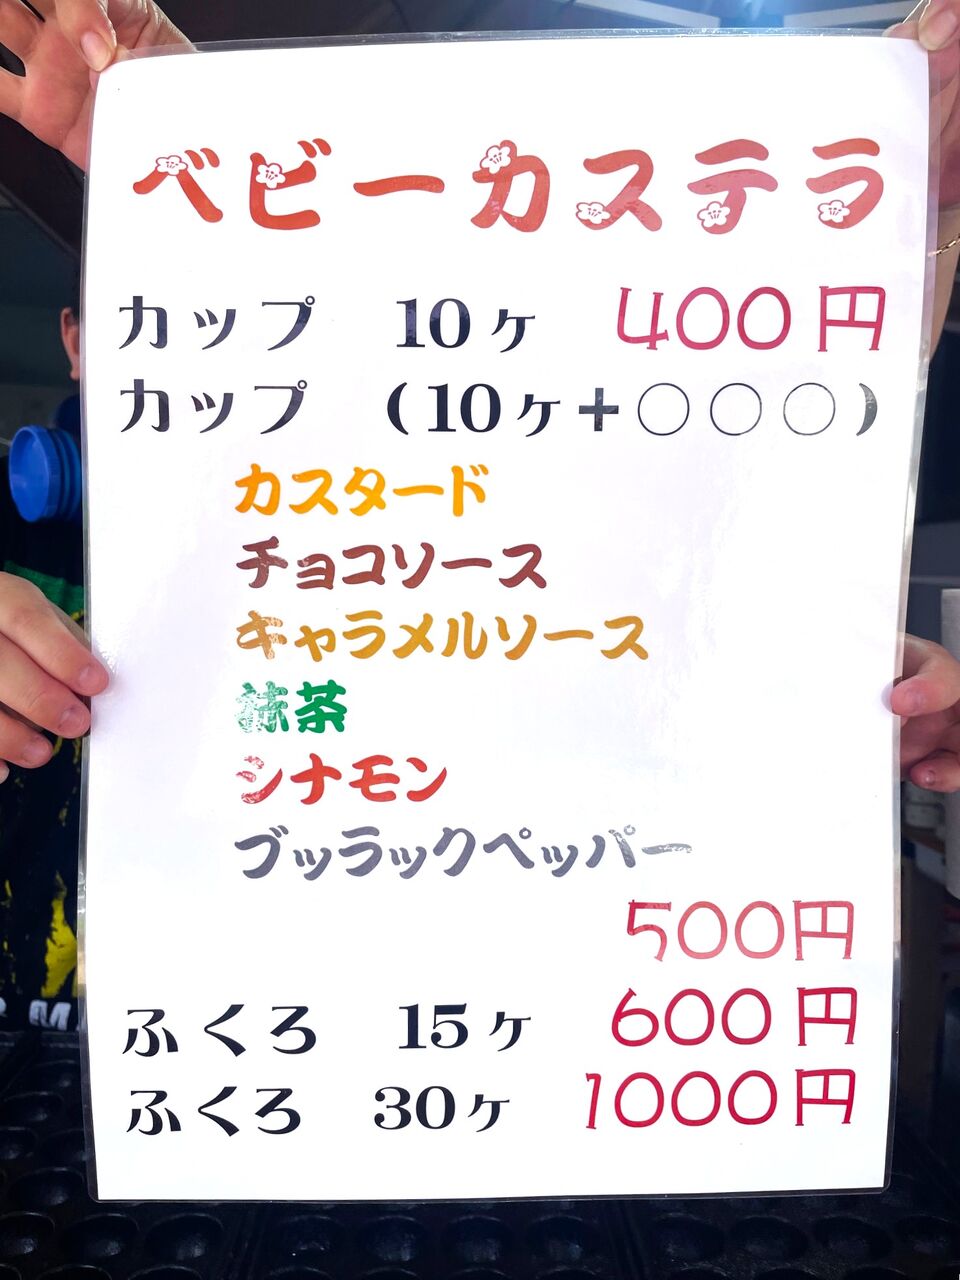 ベビーカステラ
カップ 10ヶ 400円
カップ (10ヶ+○○○)
カスタード
チョコソース
キャラメルソース
抹茶
シナモン
ブッラックペッパー
500円
ふくろ 15ヶ 600円
ふくろ 30ヶ 1000円